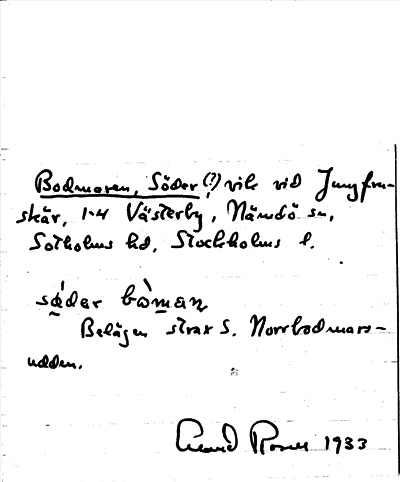 Bodmaren, Söder (?) vik vid Jungfru-
skär, 1-4 Västerby, Nämdö sn,
Sotholms hd, Stockholms l.
så̀dar bòman
Belägen strax S. Norrbodmars-
udden.
1933